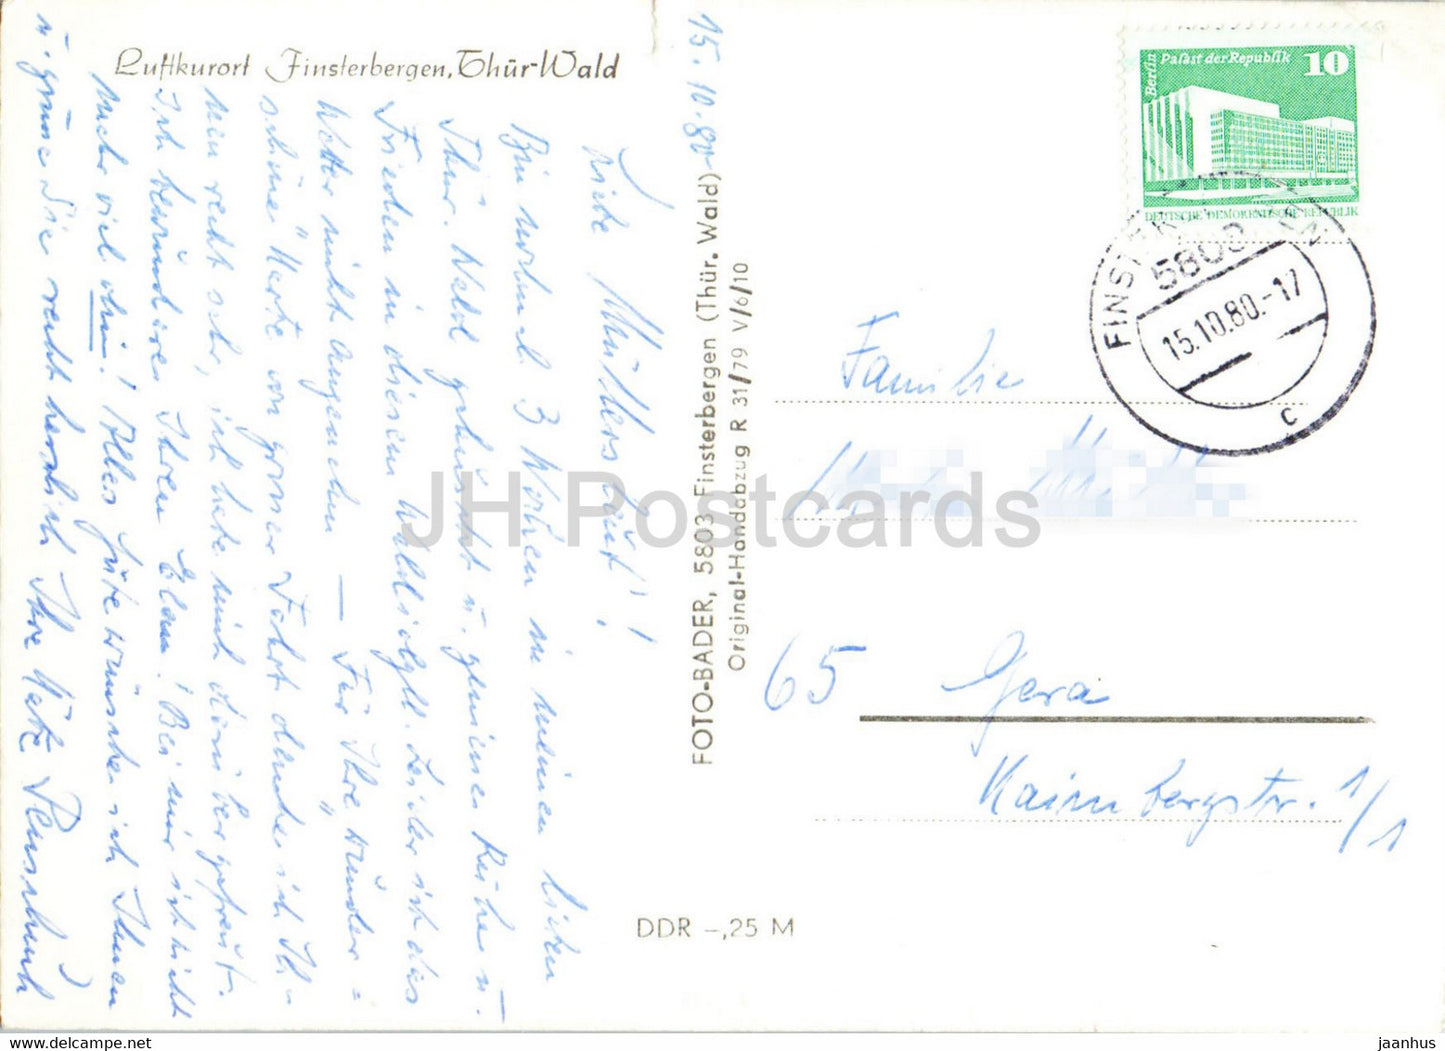 Luftkurort Finsterbergen, Thür-Wald
15.10.80
Liebe Müllersleut'!
Bin noch 3 Wochen in meinen lieben
Thür. Wald gehuscht u. geniesse Ruhe u.
Frieden in diesem Waldidyll. Leider ist das
Wetter nicht angenehm — Für Ihre "wunder=
schöne" Karte von grosser Fahrt danke ich Ih-
nen recht sehr, ich habe mich darüber gefreut.
Ich bewundere Ihren Elan! Bei mir ist nicht
mehr viel drin! Alles Gute wünsche ich Ihnen
u. grüsse Sie recht herzlich Ihre
FOTO-BADER, 5803 Finsterbergen (Thür. Wald)
Original-Handabzug R 31/79 V/6/10
DDR -,25 M
Berlin Palast der Republik 10
DEUTSCHE DEMOKRATISCHE REPUBLIK
5803
15.10.80.-17
c
Familie
65 Gera
Kaimbergstr. 1/1
JH Postcards
www.hippostcard.com/store/jaanhus
jaanhus